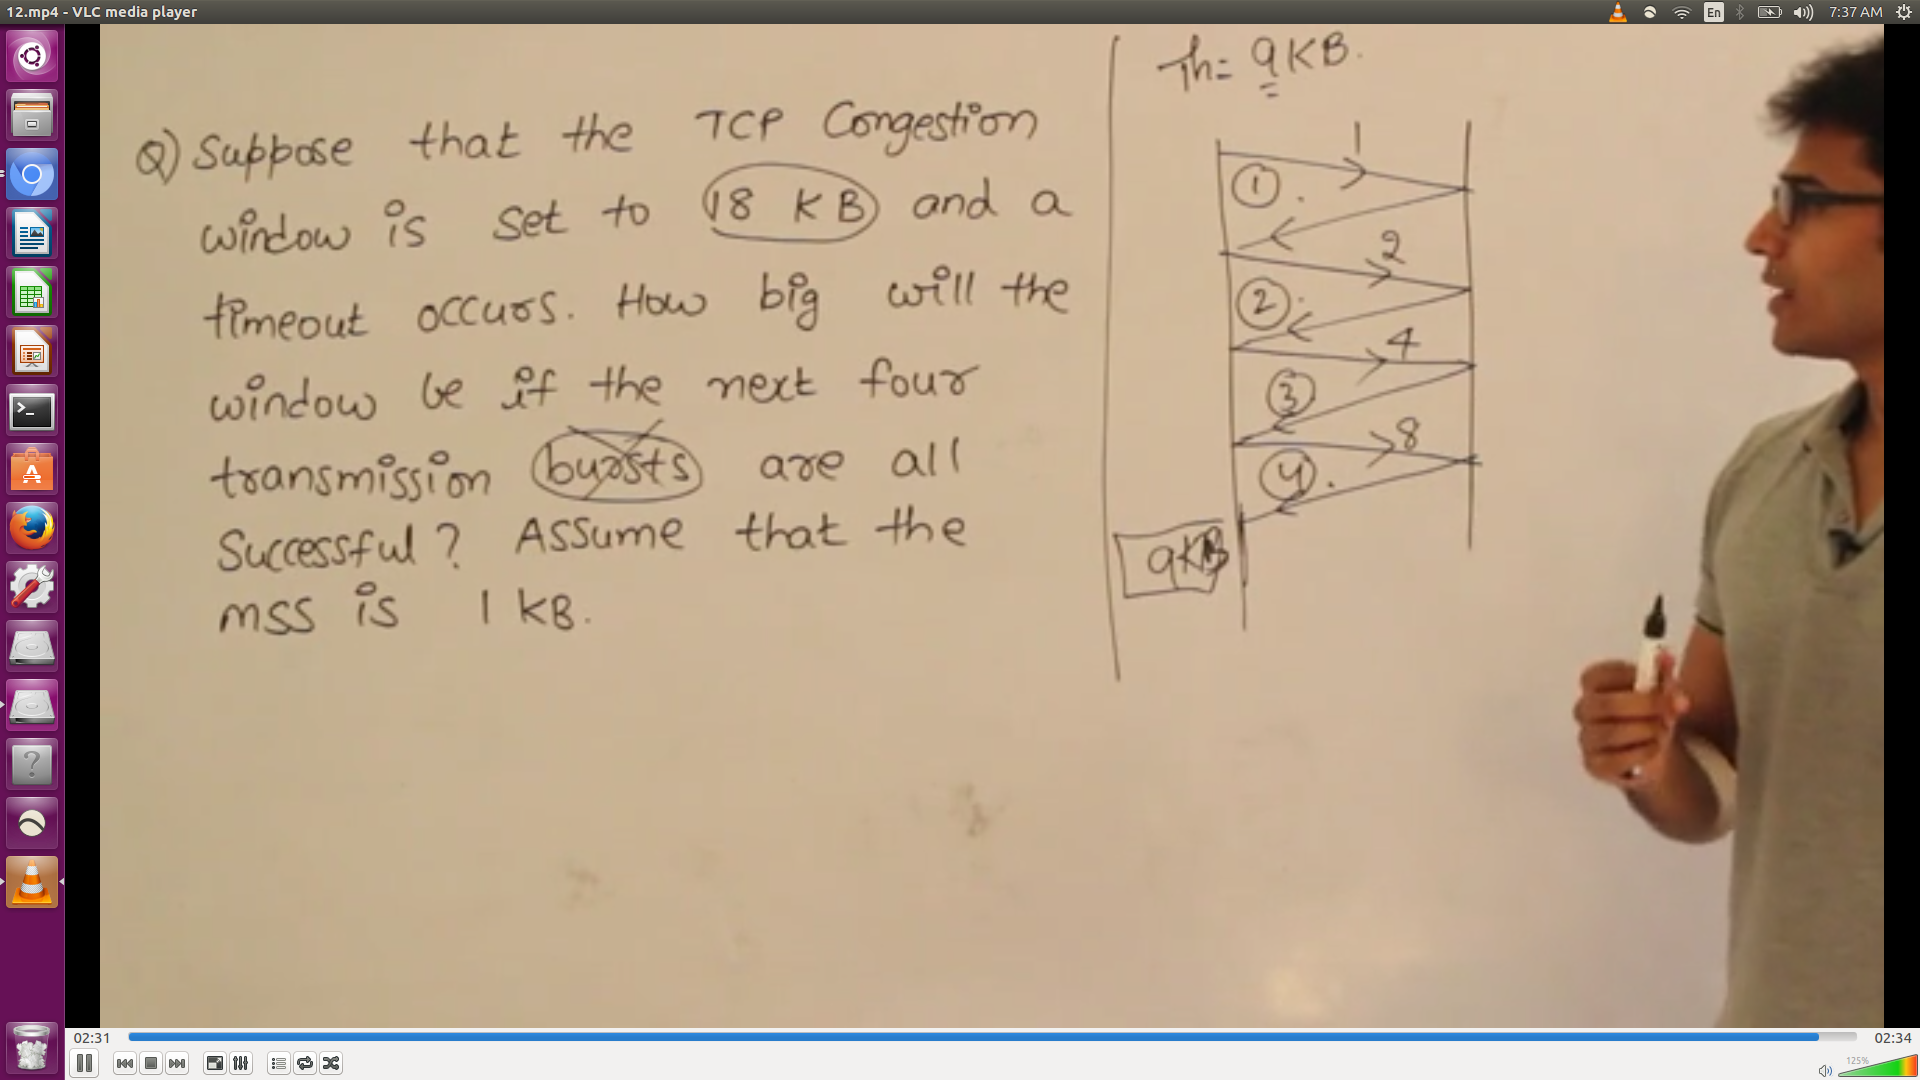 12.mp4 - VLC media player
En
7:37 AM
Q) Suppose that the TCP Congestion
window is set to 18 KB and a
timeout occurs. How big will the
window be if the next four
transmission bursts are all
Successful? Assume that the
mss is 1 KB.
Th= 9KB.
1
1
2
2
4
3
8
4
9KB
02:31
02:34
125%